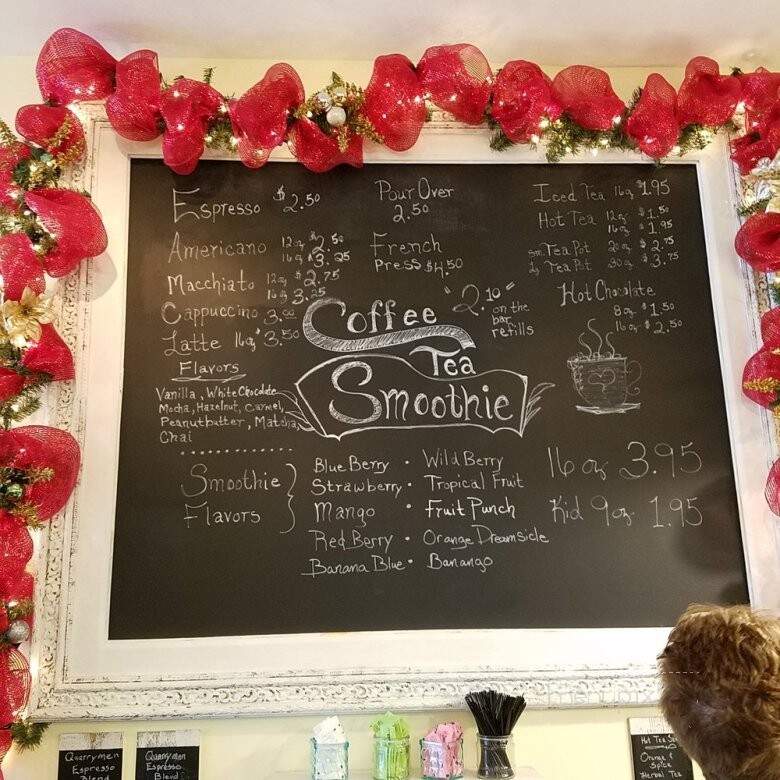 Espresso $2.50
Americano 12oz $2.50
16oz $3.25
Macchiato 12oz $2.75
16oz 3.25
Cappuccino 3.00
Latte 16oz $3.50
Flavors
Vanilla, White Chocolate
Mocha, Hazelnut, Carmel,
Peanutbutter, Matcha,
Chai
Pour Over
2.50
French
Press $4.50
"2.10"
on the
bar
refills
Coffee
Tea
Smoothie
Iced Tea 16oz $1.95
Hot Tea 12oz $1.50
16oz $1.95
sm Tea Pot 20oz $2.75
lg Tea Pot 30oz $3.75
Hot Chocolate
8oz $1.50
16oz $2.50
Smoothie
Flavors
Blue Berry • Wild Berry
Strawberry • Tropical Fruit
Mango • Fruit Punch
Red Berry • Orange Dreamsicle
Banana Blue • Banango
16 oz 3.95
Kid 9oz 1.95
Quarrymen
Espresso
Blend
Quarrymen
Espresso
Blend
Hot Tea
Orange &
Spice
Herbal Tea